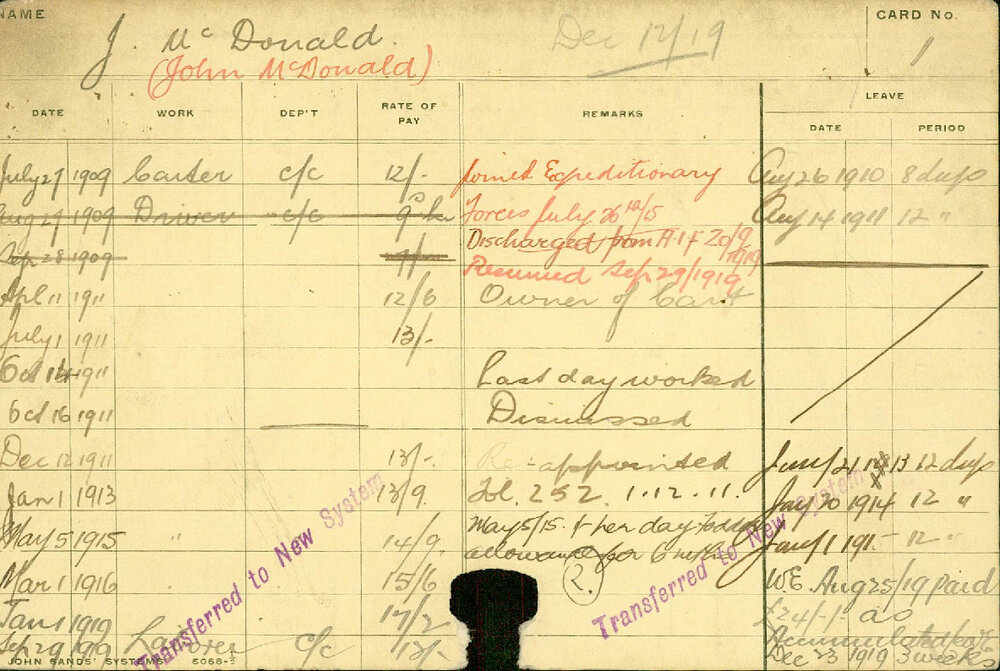 NAME
CARD No.
J. McDonald.
Dec 17/19
1
(John McDonald)
DATE WORK DEP'T RATE OF PAY REMARKS LEAVE
DATE PERIOD
July 27 1909 Carter c/c 12/- Joined Expeditionary Aug 26 1910 8 days
Aug 29 1909 Driver c/c 9 Forces July 26th/15 Aug 14 1911 12 "
Sep 28 1909 Discharged from A.I.F 20/9/1919
Resumed Sep 29/1919
Apl 11 1911 12/6 Owner of Cart
July 1 1911 13/-
Oct 14 1911 Last day worked
Oct 16 1911 Dismissed
Dec 12 1911 13/- Re-appointed 12 days
Jan 1 1913 13/9 fol. 252. 1.12.11. 1914 12 "
May 5 1915 " 14/9 May 5/15. 1/- per day 12 "
allowance for 6
Mar 1 1916 " 15/6 (2.) W.E. Aug 25/19 paid
Jan 1 1919 17/2 £24/-/- as
Sep 29 1919 c/c Accumulated
Dec 23 1919 3 weeks
Transferred to New System
Transferred to New System
JOHN SANDS' SYSTEMS 6068-